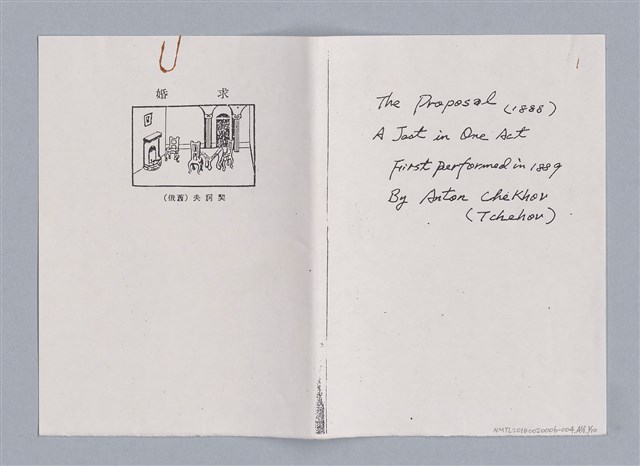 求婚
契訶夫(舊俄)
1
The Proposal (1888)
A Jest in One Act
First performed in 1889
By Anton Chekhov
(Tchehov)